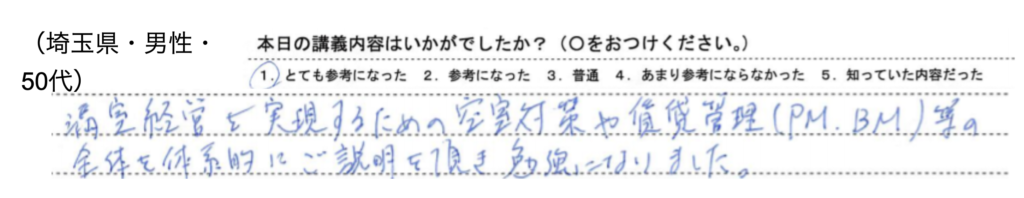 （埼玉県・男性・
50代）
本日の講義内容はいかがでしたか？（○をおつけください。）
1．とても参考になった 2．参考になった 3．普通 4．あまり参考にならなかった 5．知っていた内容だった
満室経営を実現するための空室対策や賃貸管理（PM．BM）等の
全体を体系的にご説明を頂き勉強になりました。